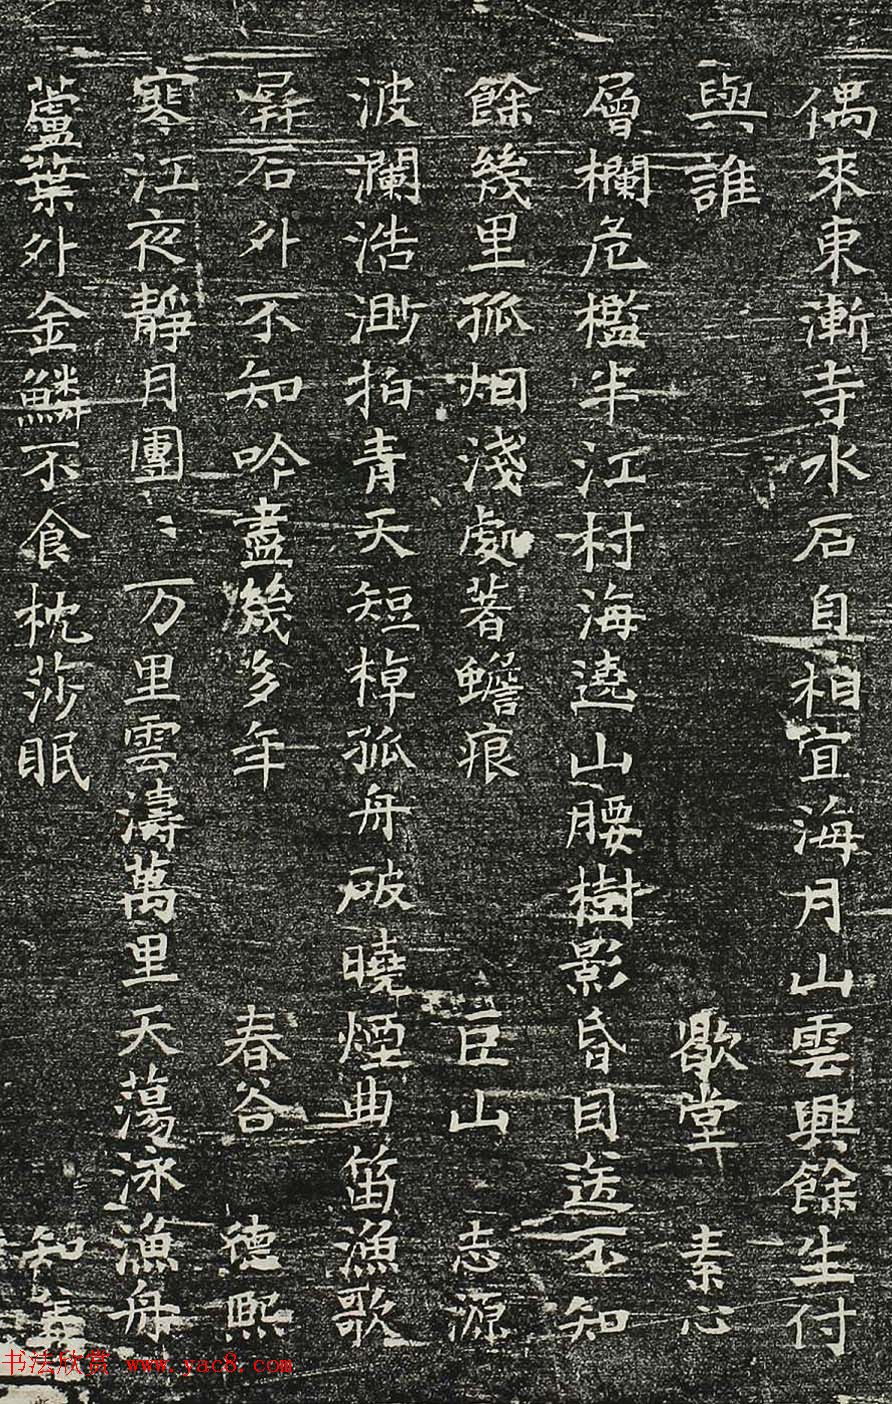 偶來東漸寺水石自相宜海月山雲興餘生付
與誰 歇堂 素心
層欄危檻半江村海遶山腰樹影昏目送不知
餘幾里孤烟淺處著蟾痕 巨山 志源
波瀾浩渺拍青天短棹孤舟破曉煙曲笛漁歌
屏石外不知吟盡幾多年 春谷 德熙
寒江夜靜月團〻万里雲濤萬里天蕩泳漁舟
蘆葉外金鱗不食枕莎眠 知
书法欣赏 www.yac8.com